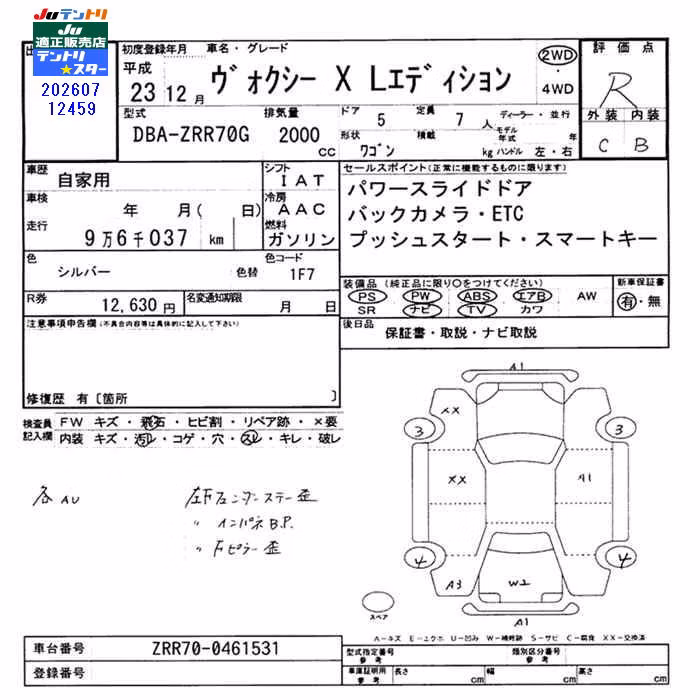 Juテントリ
Ju
適正販売店
テントリ
★スター
202607
12459
初度登録年月
平成
23 12 月
車名・グレード
ヴォクシー X Lエディション
2WD
4WD
評価点
R
外装 内装
C B
型式
DBA-ZRR70G
排気量
2000 cc
ドア 5
定員 7 人
形状 ワゴン
積載 kg
ディーラー・並行
モデル年式 年
ハンドル 左・右
車歴 自家用
車検 年 月( 日)
走行 9万6千037 km
シフト IAT
冷房 AAC
燃料 ガソリン
セールスポイント(正常に機能するものに限ります)
パワースライドドア
バックカメラ・ETC
プッシュスタート・スマートキー
色 シルバー 色替
色コード 1F7
R券 12,630 円
名変通知期限 月 日
装備品 (純正品に限り○をつけてください)
PS PW ABS エアB AW
SR ナビ TV カワ
新車保証書
有・無
後日品 保証書・取説・ナビ取説
注意事項申告欄(不具合内容等は具体的に記入して下さい)
修復歴 有〔箇所 〕
検査員
記入欄
FW キズ・飛石・ヒビ割・リペア跡・×要
内装 キズ・汚れ・コゲ・穴・スレ・キレ・破レ
各AU
左Fフェンダーステー歪
〃 インパネB.P.
〃 Fピラー歪
A1
XX
3
3
XX
A1
4
4
A3
W2
A1
スペア
A-キズ E-エクボ U-凹み W-補修跡 S-サビ C-腐食 XX-交換済
車台番号 ZRR70-0461531
登録番号
型式指定番号 参考
類別区分番号 参考
車庫証明用 参考
長さ cm
幅 cm
高さ cm